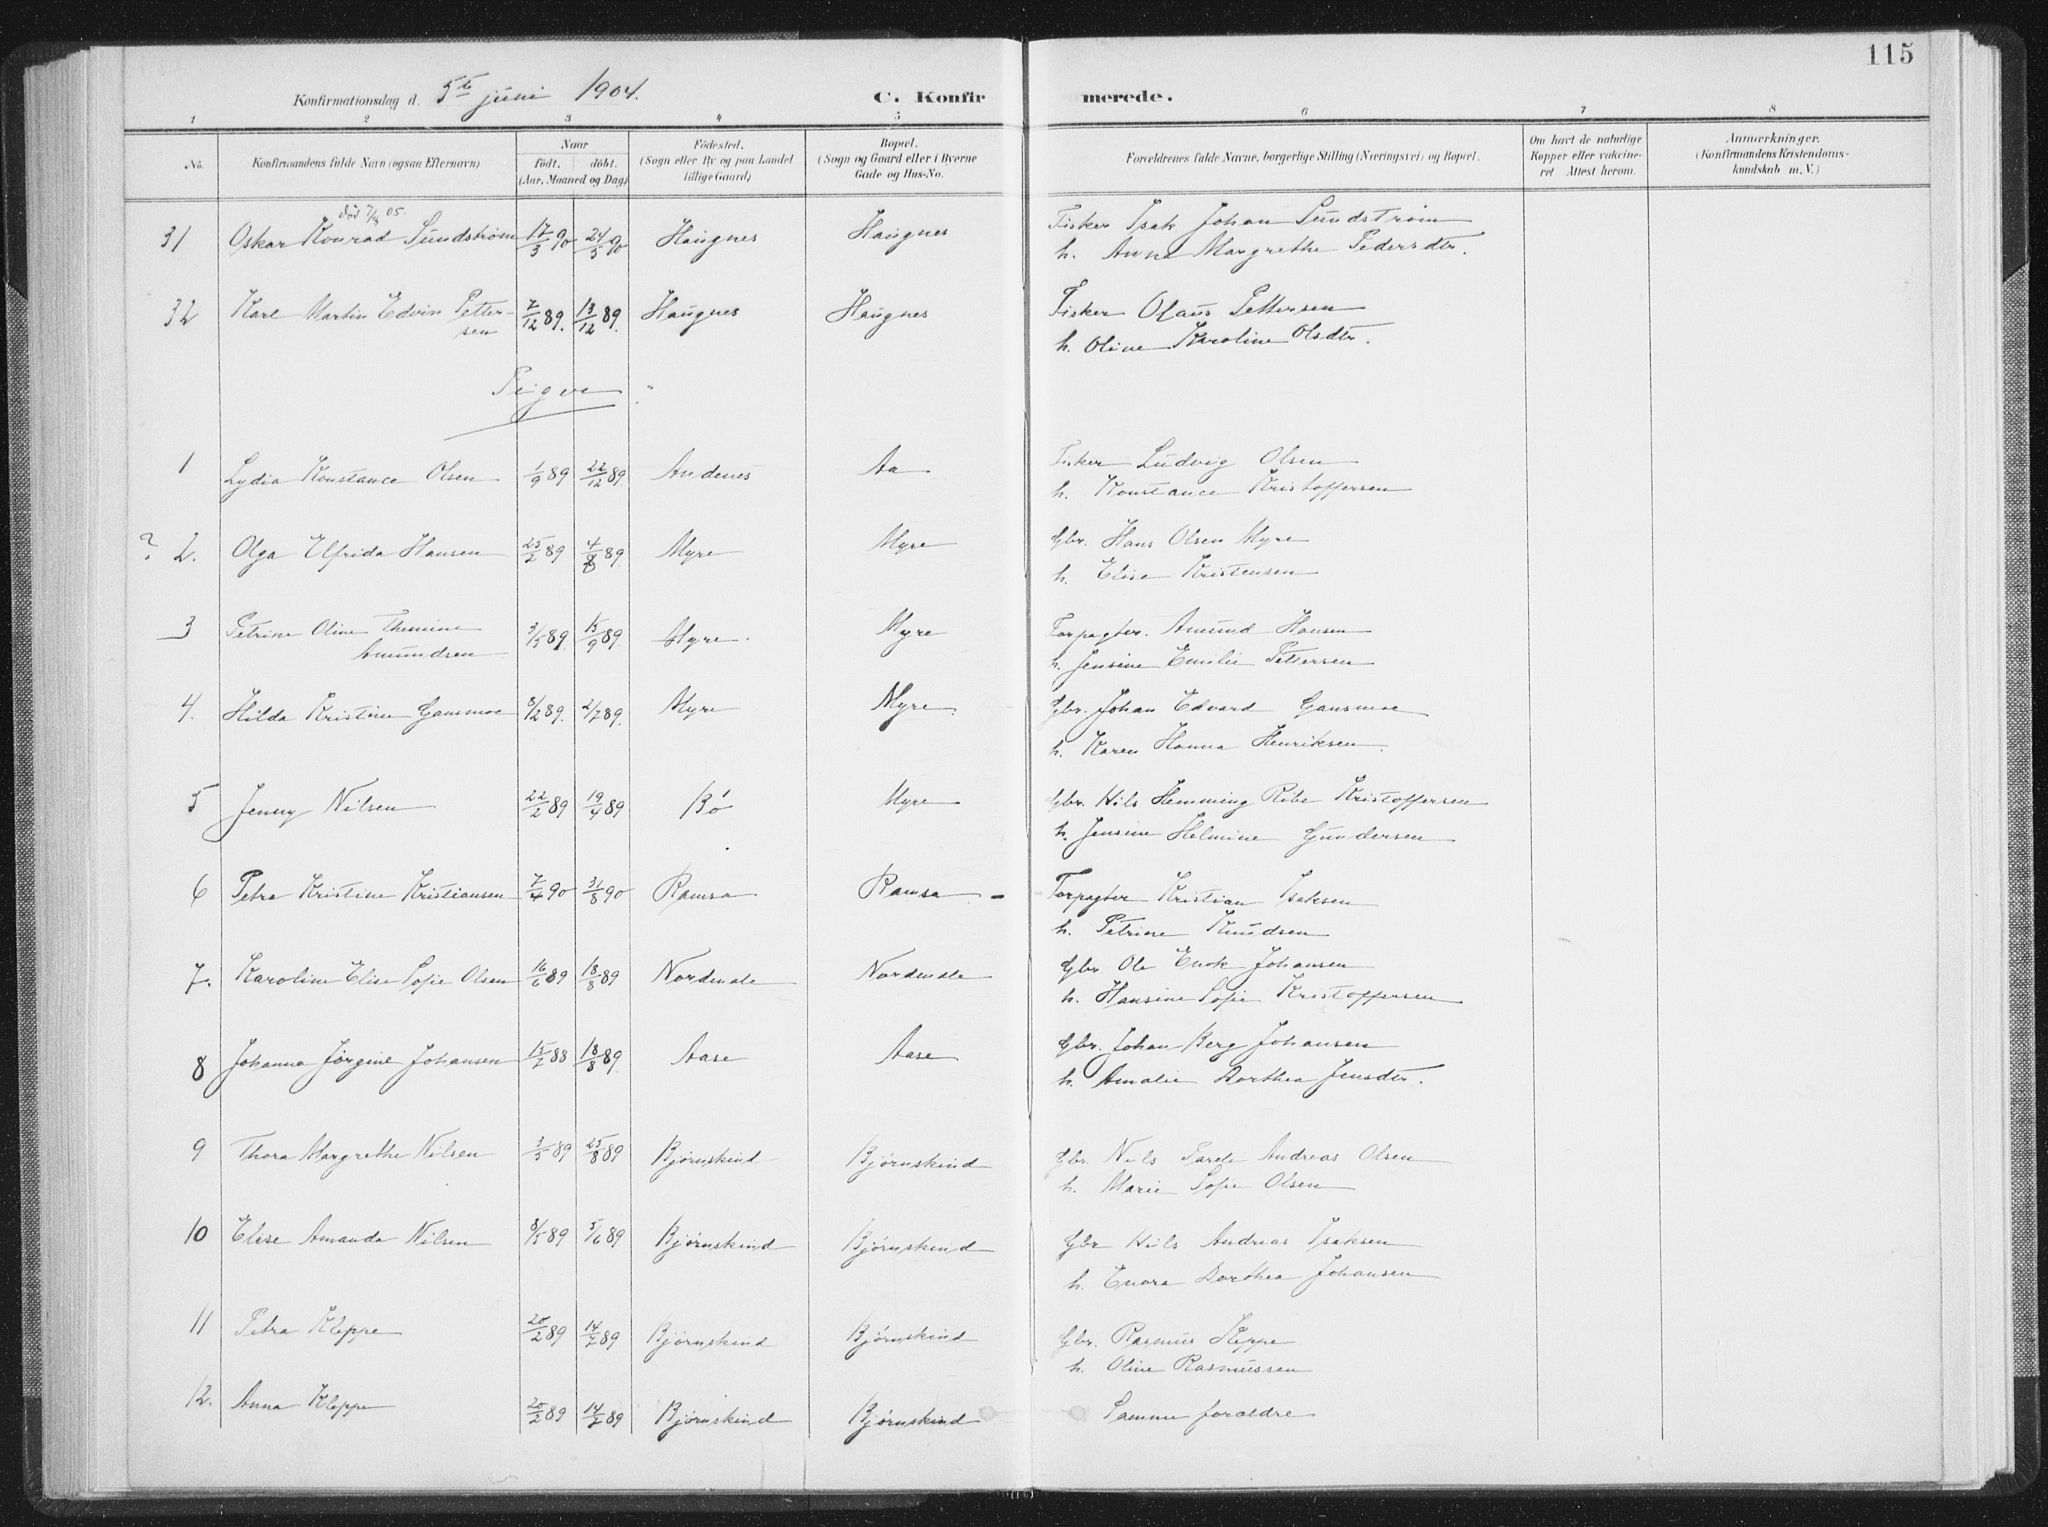 115
Konfirmationsdag d. 5te juni 1904.
C. Konfirmerede.
1 2 3 4 5 6 7 8
No. Konfirmandens fulde Navn (ogsaa Efternavn) Naar født. døbt. (Aar, Maaned og Dag) Fødested. (Sogn eller By og paa Landet tillige Gaard) Bopæl. (Sogn og Gaard eller i Byerne Gade og Hus-No. Forældrenes fulde Navne, borgerlige Stilling (Næringsvei) og Bopæl. Om havt de naturlige Kopper eller vakcineret Attest herom. Anmærkninger. (Konfirmandens Kristendomskundskab m. V.)
død 7/8 05.
31 Oskar Konrad Sundstrøm 17/3 90 24/5 90 Haugnes Haugnes Fisker Isak Johan Sundstrøm
h. Anna Margrethe Pedersdtr.
32 Karl Martin Edvin Pettersen 7/12 89. 13/12 89. Haugnes Haugnes Fisker Olaus Pettersen
h. Oline Karoline Olsdtr.
Piger
1 Lydia Konstance Olsen 1/9 89 22/12 89 Andenes Aa Fisker Ludvig Olsen
h. Konstance Kristoffersen
? 2. Olga Elfrida Hansen 25/2 89 4/8 89. Myre Myre Gbr. Hans Olsen Myre
h. Elise Kristensen
3 Petrine Oline Themine Amundsen 3/5 89. 15/9 89. Myre. Myre Forpagter. Amund Hansen
h. Jensine Emilie Pettersen
4. Hilda Kristine Gansmoe 8/12 89. 2/7 89. Myre Myre Gbr. Johan Edvard Gansmoe
h. Karen Hanna Henriksen.
5 Jenny Nilsen 22/2 89 19/4 89 Bø Myre Gbr. Nils Hemming Ribe Kristoffersen
h. Jensine Helmine Gundersen
6 Petra Kristine Kristiansen 7/4 90 31/8 90 Ramsa Ramsa - Forpagter Kristian Isaksen
h. Petrine Knudsen
7. Karoline Elise Sofie Olsen 16/6 89 18/8 89 Nordmele Nordmele Gbr Ole Enok Johansen
h. Hansine Sofie Kristoffersen
8 Johanna Jørgine Johansen 15/7 88 18/8 89. Aase Aase Gbr. Johan Berg Johansen
h. Amalie Dorthea Jensdtr.
9 Thora Margrethe Nilsen 3/5 89 25/8 89 Bjørnskind Bjørnskind Gbr. Nils Andreas Olsen
h. Marie Sofie Olsen
10 Elise Amanda Nilsen 8/5 89 5/6 89 Bjørnskind Bjørnskind Gbr Nils Andreas Isaksen
h. Enora Dorthea Johansen
11 Petra Kleppe 20/2 89 14/7 89 Bjørnskind Bjørnskind Gbr. Rasmus Kleppe
h. Oline Rasmussen
12. Anna Kleppe 20/2 89 14/7 89 Bjørnskind Bjørnskind Samme forældre